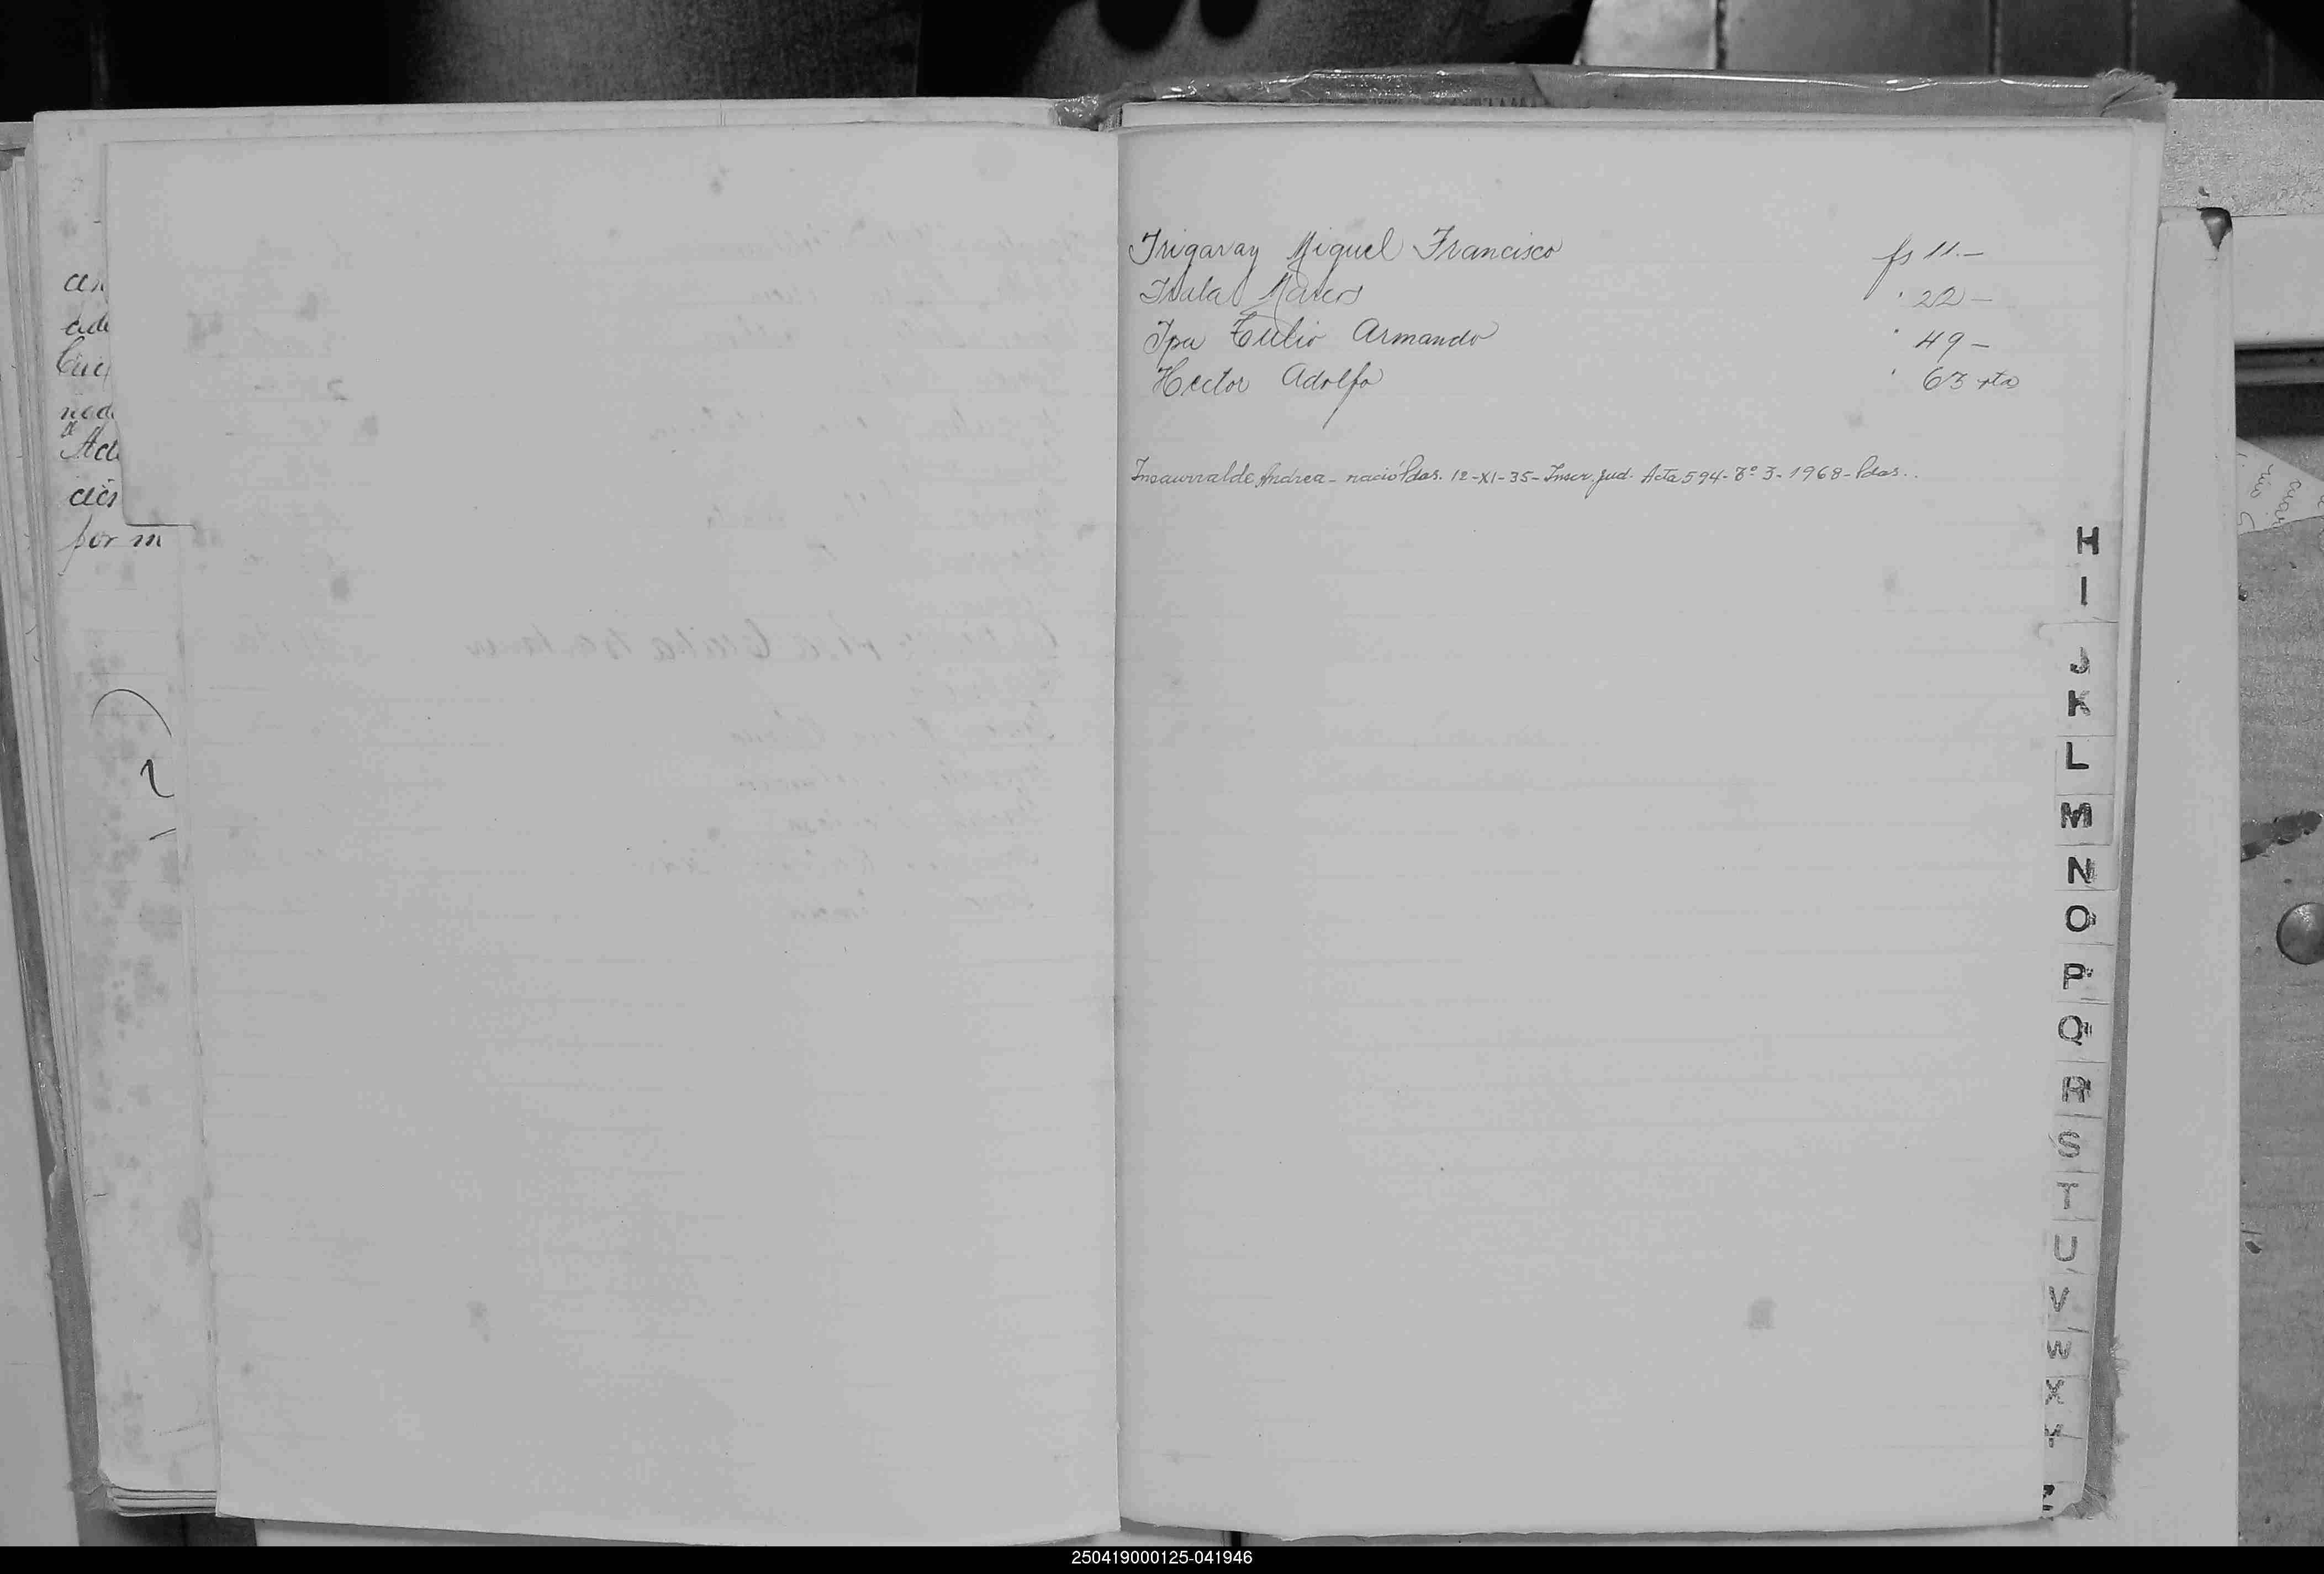 Irigaray Miguel Francisco fs 11.-
Isula Marcos " 22-
Ipa Tulio Armando " 49-
Hector Adolfo " 63 vta
Insaurralde Andrea - nació Pdas. 12-XI-35- Inscr. Jud. Acta 594- Tº 3- 1968- Pdas..
por m
H
I
J
K
L
M
N
O
P
Q
R
S
T
U
V
W
X
Y
Z
250419000125-041946